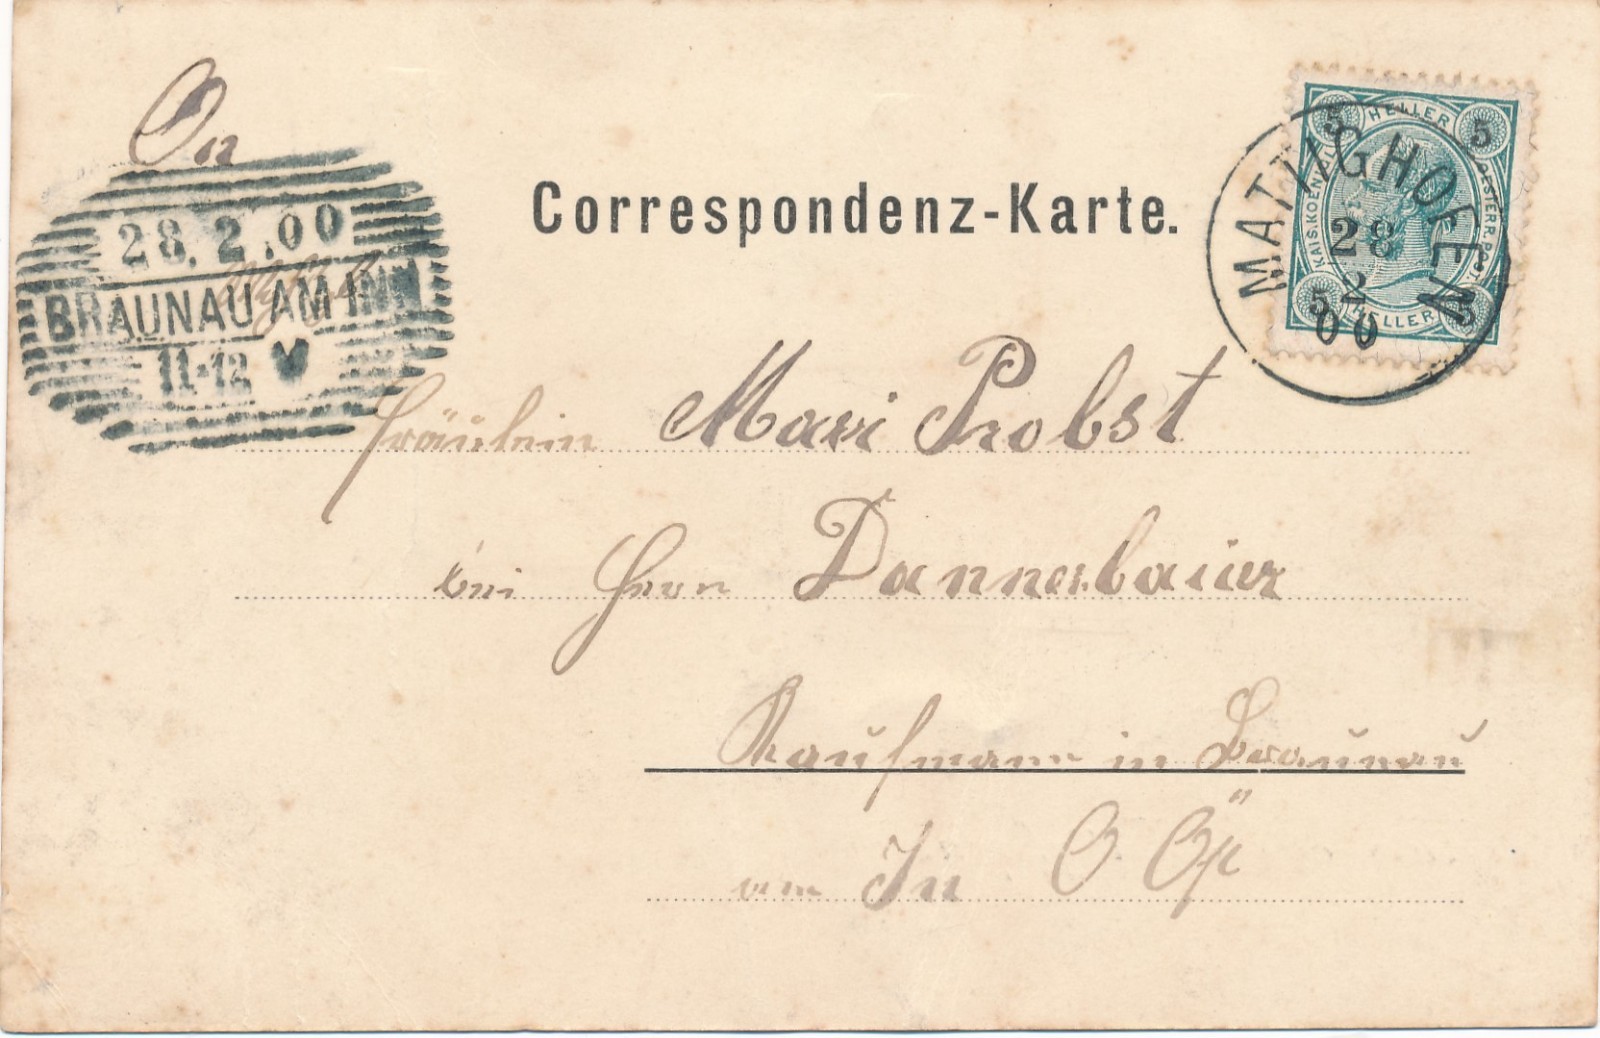 An
Correspondenz-Karte.
28.2.00
BRAUNAU AM INN
11-12 V
MATTIGHOFEN
28
2
00
5 HELLER 5
KAIS. KOENIGL. OESTERR. POST
5 HELLER 5
Fräulein Mari Probst
bei Herrn Dannerbaier
Kaufmann in Braunau
am In O. Öst